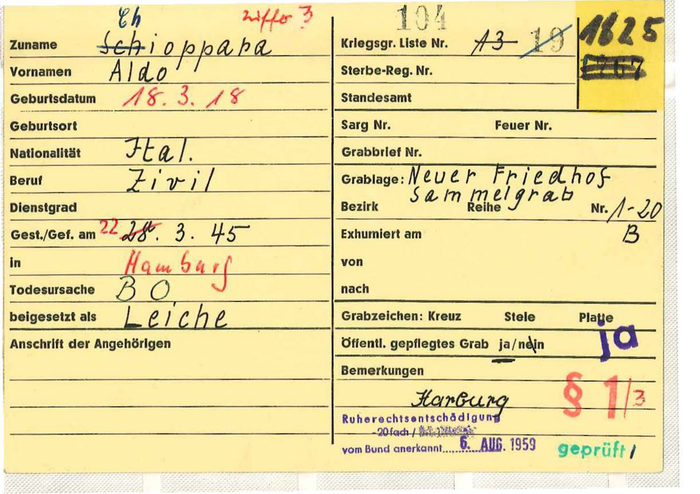 Ch
ziffer 3
Zuname Schioppara
Vornamen Aldo
Geburtsdatum 18. 3. 18
Geburtsort
Nationalität Ital.
Beruf Zivil
Dienstgrad
Gest./Gef. am 22 28. 3. 45
in Hamburg
Todesursache BO
beigesetzt als Leiche
Anschrift der Angehörigen
104
Kriegsgr. Liste Nr. A3 19
1825
Sterbe-Reg. Nr.
Standesamt
Sarg Nr. Feuer Nr.
Grabbrief Nr.
Grablage: Neuer Friedhof
Sammelgrab
Bezirk Reihe Nr. 1-20
Exhumiert am B
von
nach
Grabzeichen: Kreuz Stele Platte
ja
Öffentl. gepflegtes Grab ja/nein
Bemerkungen
Harburg
§ 1/3
Ruherechtsentschädigung
-20fach /
vom Bund anerkannt 6. AUG. 1959
geprüft